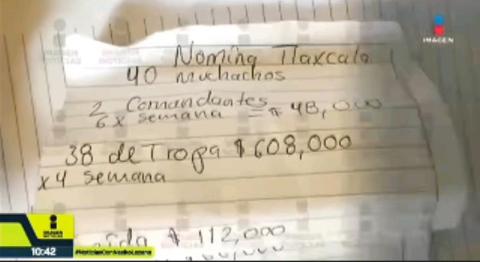 IMAGEN
Nomina Tlaxcala
40 muchachos
2 Comandantes
6x semana = $48,000
38 de Tropa $608,000
x4 semana
$112,000
IMAGEN NOTICIAS
10:42